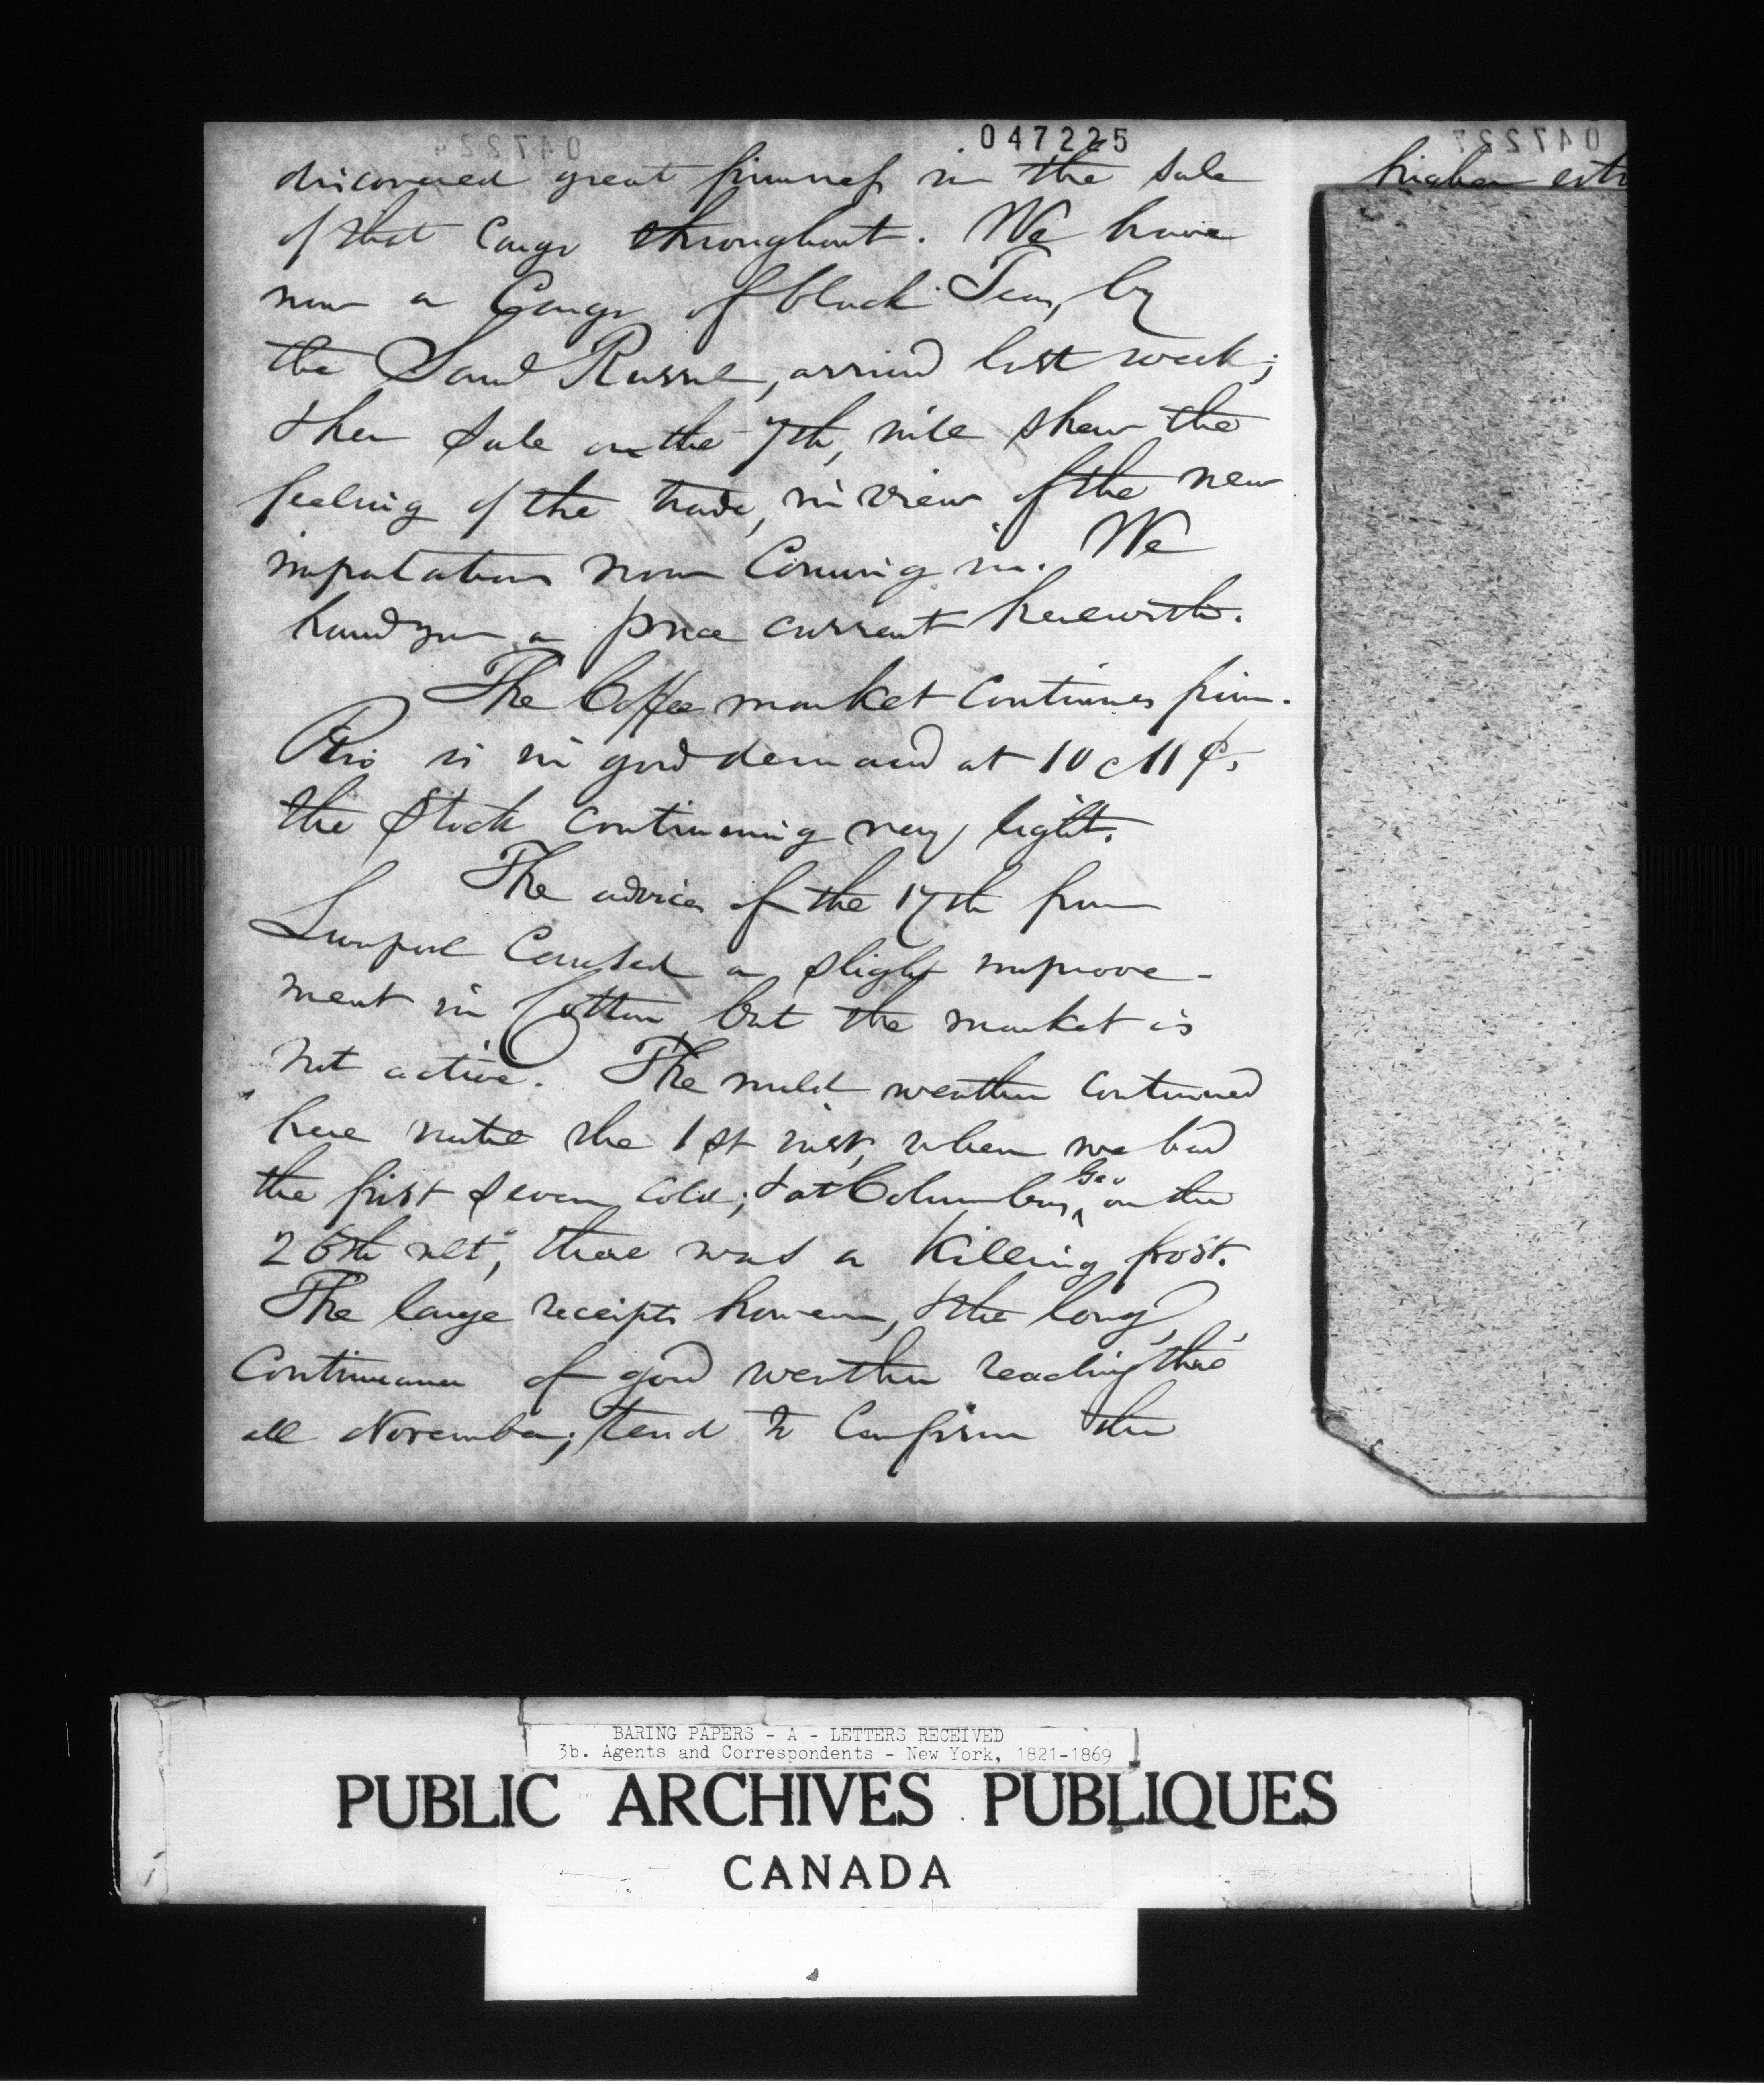 047225
discovered great firmness in the sale
of that Cargo throughout. We have
now a Cargo of black Teas, by
the Saml Russel, arrived last week;
& her sale on the 7th, will shew the
feeling of the trade, in view of the new
importations now Coming in. We
hand you a price current herewith.
The Coffee market Continues firm.
Rio is in good demand at 10 c 11 ¢,
the Stock continuing very light.
The advices of the 17th from
Liverpool Caused a slight improve-
ment in Cotton, but the market is
not active. The mild weather continued
here until the 1st inst, when we had
the first severe cold; & at Columbus, Geo on the
26th ult, there was a Killing frost.
The large receipts however, & the long
Continuance of good weather reaching thro'
all November; tend to Confirm the
higher
BARING PAPERS - A - LETTERS RECEIVED
3b. Agents and Correspondents - New York, 1821-1869
PUBLIC ARCHIVES PUBLIQUES
CANADA